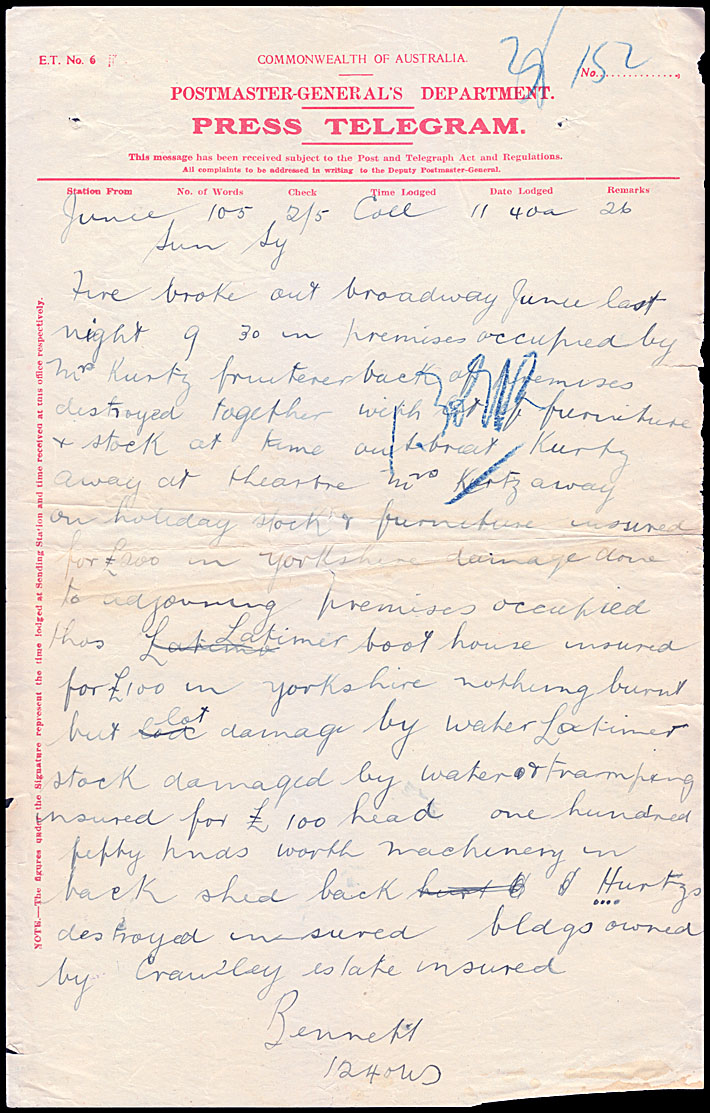 E.T. No. 6
COMMONWEALTH OF AUSTRALIA.
No. 152
POSTMASTER-GENERAL'S DEPARTMENT.
PRESS TELEGRAM.
This message has been received subject to the Post and Telegraph Act and Regulations.
All complaints to be addressed in writing to the Deputy Postmaster-General.
Station From No. of Words Check Time Lodged Date Lodged Remarks
Junee 105 2/5 Coll 11 40a 26
Sun Sy
Fire broke out broadway Junee last
night 9 30 in premises occupied by
Mrs Kurtz fruiterer back of premises
destroyed together with lot of furniture
& stock at time outbreat Kurtz
away at theartre Mrs Kurtz away
on holiday stock & furniture insured
for £200 in yorkshire damage done
to adjoining premises occupied
thos Latime Latimer boot house insured
for £100 in yorkshire nothing burnt
but lot damage by water Latimer
stock damaged by water & tramping
insured for £100 head one hundred
fifty pnds worth machinery in
back shed back hurt of Hurtzs
destroyed insured bldgs owned
by Crawley estate insured
Bennett
1240
NOTE.—The figures under the Signature represent the time lodged at Sending Station and time received at this office respectively.